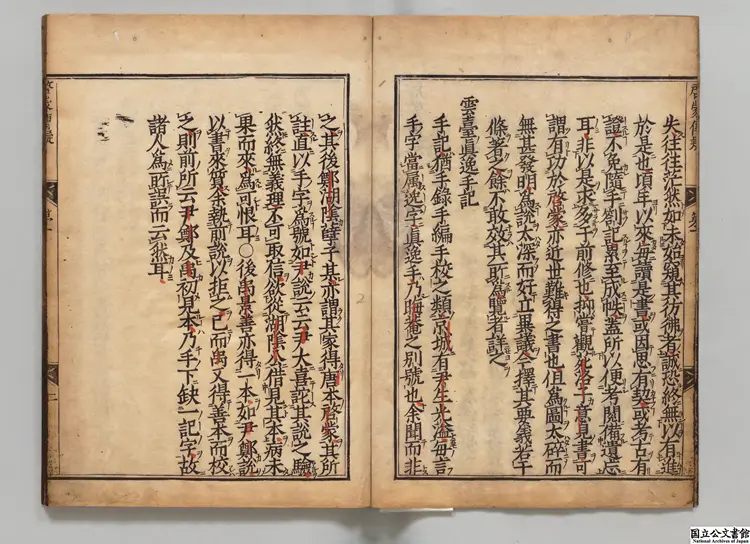 失往往茫然如未始窺其彷彿者誠恐終無以有進
於是也頃年以來每讀是書或因思有契或考古有
證不免隨手箚記累至成帙蓋所以便考閱備遺忘
耳非以是求多于前修也抑嘗觀花谷子意見書可
謂有功於啓蒙亦近世難得之書也但爲圖太碎而
無甚發明爲說太深而好立異議今擇其要義若干
條著之餘不敢效其所爲覽者詳之
雲臺眞逸手記
手記猶手錄手編手校之類京城有尹生光溢每言
手字當属逸字眞逸手乃晦菴之別號也余聞而非
之其後鄭湖陰壻子某亦謂其家得唐本啓蒙其所
註直以手字爲號如尹說云云尹大喜詫其說之驗
然終無義理不可取信欲從湖陰人借見其本病未
果而來爲可恨耳○後禹景善亦得一本如尹鄭說
以書來質余執前說以拒之已而禹又得善本而校
之則前所云尹鄭及禹初見本乃手下缺一記字故
諸人爲所誤而云然耳
国立公文書館
National Archives of Japan